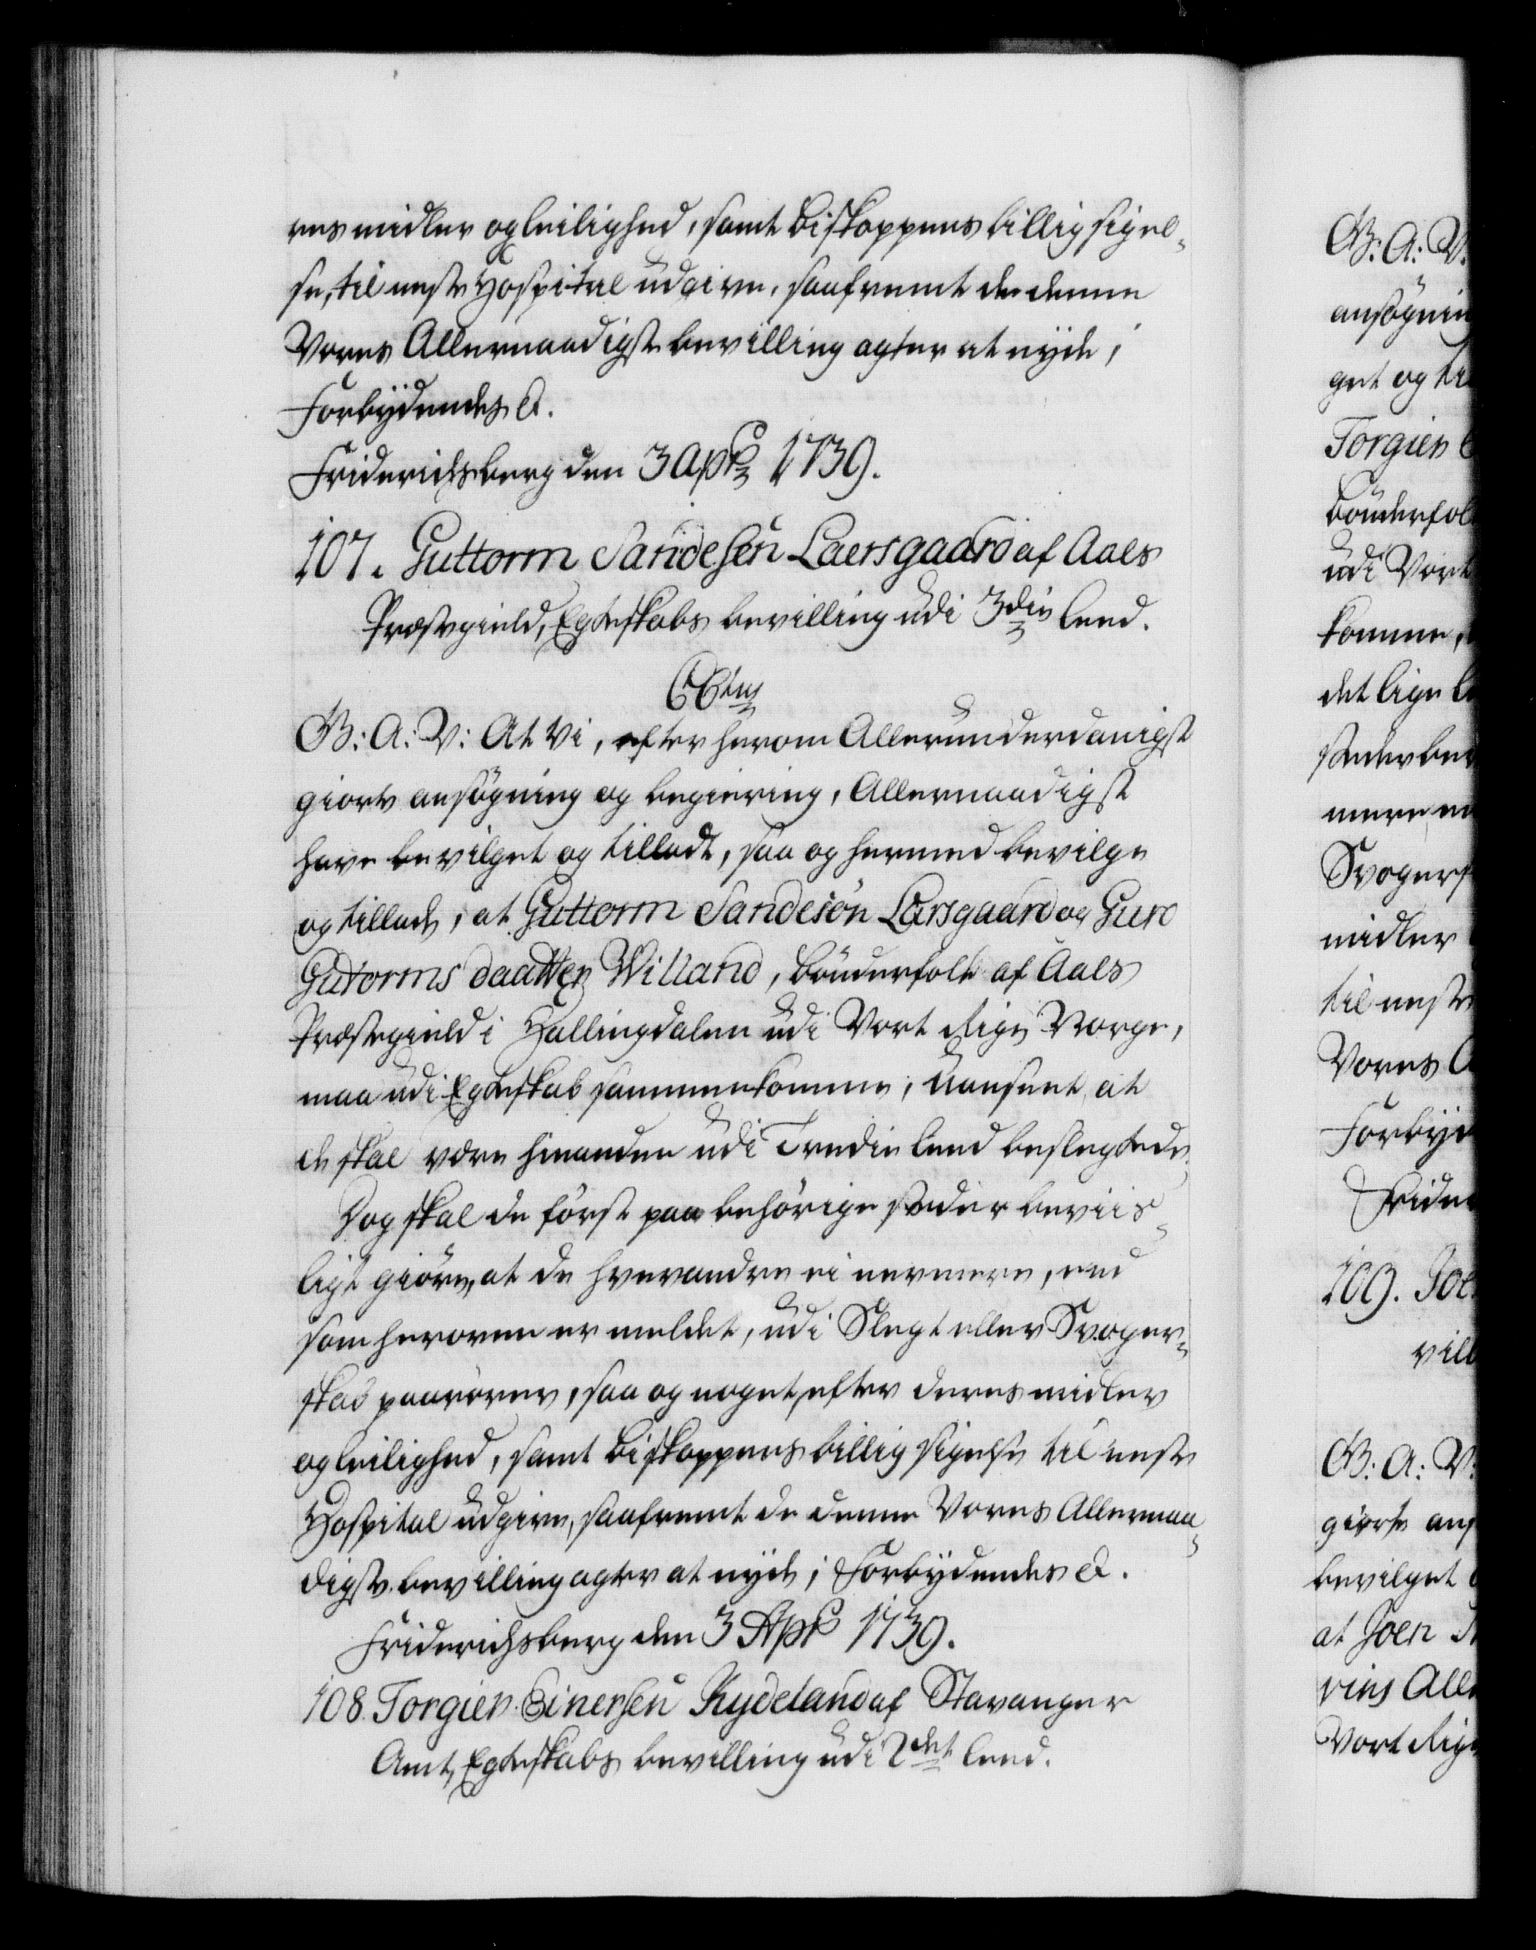 res midler og leilighed, samt Biskoppens billig sigel-
se, til neste Hospital udgive, saafremt de denne
Vores Allernaadigste bevilling agter at nyde;
Forbydendes &.
Friderichsberg den 3 Apr: 1739.
107. Guttorm Sandesen Laersgaard af Aals
Præstegield, Egteskabs bevilling udi 3die Leed.
C6tus
G: A: V: At Vi, efter herom Allerunderdanigst
giorte ansøgning og begiering, Allernaadigst
have bevilget og tilladt, saa og hermed bevilge
og tillade, at Guttorm Sandesøn Larsgaard og Guro
Gutorms daatter Villand, bønderfolk af Aals
Præstegield i Hallingdalen udi Vort Rige Norge,
maa udi Egteskab sammenkomme, Uanseet at
de skal være hinanden udi Tredie Leed beslegtede.
Dog skal de først paa behörige steder beviis-
ligt giöre, at de hverandre ei nermere, end
som heroven er meldet, udi Slegt eller Svoger-
skab paarører, saa og noget, efter deres midler
og leilighed, samt Biskoppens billig sigelse til neste
Hospital udgive, saafremt de denne Vores Allernaa-
digste bevilling agter at nyde; Forbydendes &.
Friderichsberg den 3 Apr: 1739.
108. Torgier Einersen Rydeland af Stavanger
Amt, Egteskabs bevilling udi 2det Leed.
G: A: V:
ansøgnin
get og til
Torgien
bönderfol
udi Vort
komme,
det lige
Svogers
midler
til neste
Vores A
Forbyd
Frider
109. Joe
vill
G: A: V:
giorte ans
bevilget
at Joen
Vort Rige